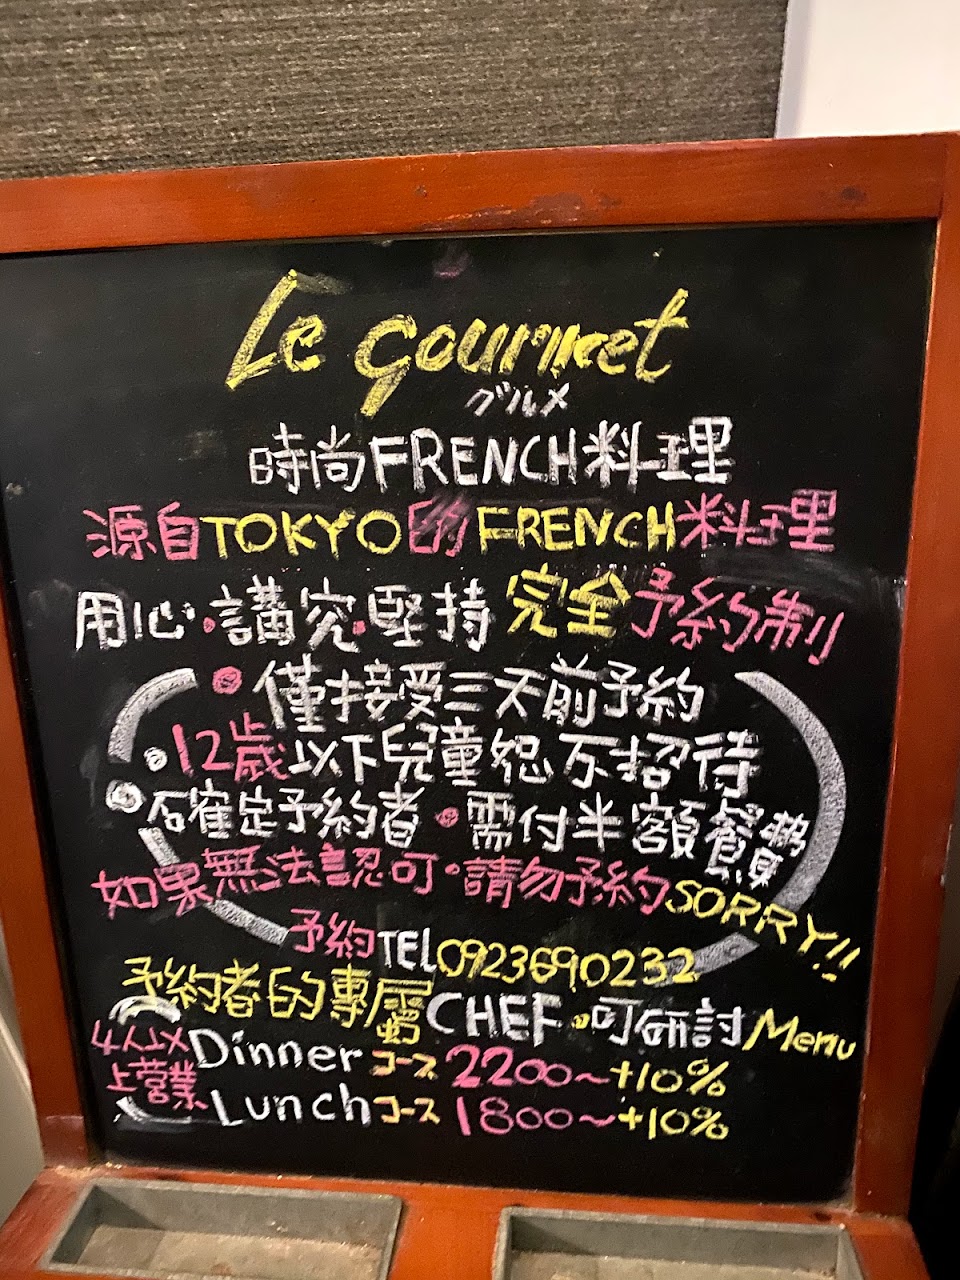 Le gourmet
グルメ
時尚FRENCH料理
源自TOKYO的FRENCH料理
用心.講究.堅持 完全予約制
僅接受三天前予約
12歳以下兒童恕不招待
確定予約者 需付半額餐費
如果無法認可.請勿予約SORRY!!
予約TEL0923690232
予約者的專屬CHEF.可研討Menu
4人以上営業
Dinnerコース2200~+10%
Lunchコース1800~+10%